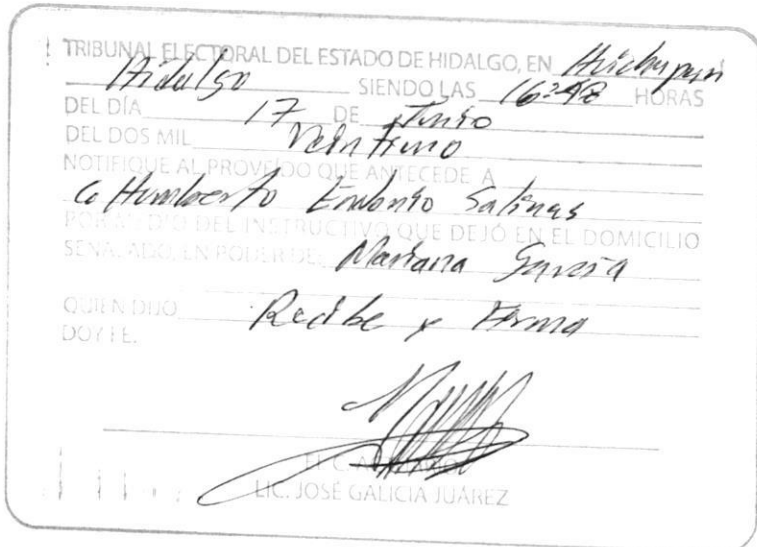 TRIBUNAL ELECTORAL DEL ESTADO DE HIDALGO, EN Huichapan
Hidalgo SIENDO LAS 16:48 HORAS
DEL DÍA 17 DE Junio
DEL DOS MIL Veintiuno
NOTIFIQUE AL PROVEÍDO QUE ANTECEDE A
C. Humberto Endonio Salinas
POR MEDIO DEL INSTRUCTIVO QUE DEJÓ EN EL DOMICILIO
SEÑALADO, EN PODER DE: Mariana García
QUIEN DIJO Recibe y Firma
DOY FE.
EL C. ACTUARIO
LIC. JOSÉ GALICIA JUÁREZ